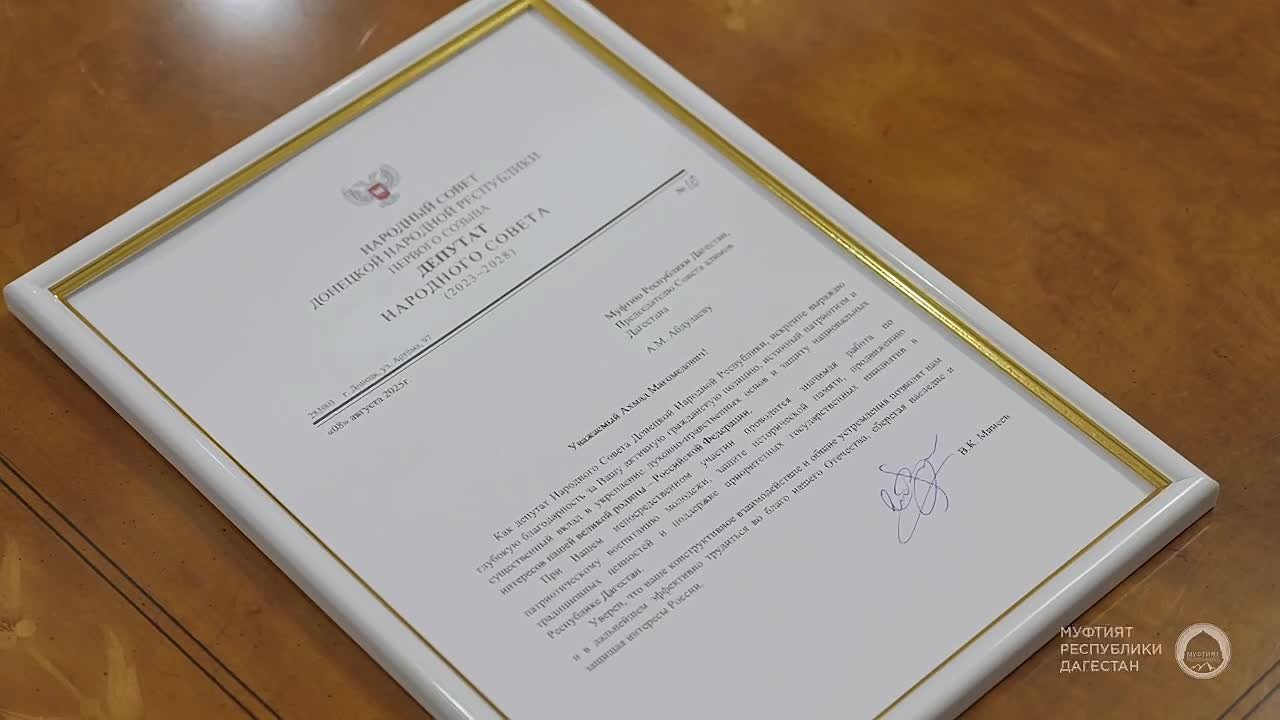 НАРОДНЫЙ СОВЕТ
ДОНЕЦКОЙ НАРОДНОЙ РЕСПУБЛИКИ
ПЕРВОГО СОЗЫВА
ДЕПУТАТ
НАРОДНОГО СОВЕТА
(2023–2028)
283001 г. Донецк, ул. Артёма, 97
«08» августа 2025г.
№
Муфтию Республики Дагестан,
Председателю Совета алимов
Дагестана
А.М. Абдулаеву
Уважаемый Ахмад Магомедович!
Как депутат Народного Совета Донецкой Народной Республики, искренне выражаю
глубокую благодарность за Вашу активную гражданскую позицию, истинный патриотизм и
существенный вклад в укрепление духовно-нравственных основ и защиту национальных
интересов нашей великой родины – Российской Федерации.
При Вашем непосредственном участии проводится значимая работа по
патриотическому воспитанию молодежи, защите исторической памяти, продвижению
традиционных ценностей и поддержке приоритетных государственных инициатив в
Республике Дагестан.
Уверен, что наше конструктивное взаимодействие и общие устремления позволят нам
и в дальнейшем эффективно трудиться во благо нашего Отечества, сберегая наследие и
защищая интересы России.
В.К. Минич
МУФТИЯТ
РЕСПУБЛИКИ
ДАГЕСТАН
МУФТИЯТ